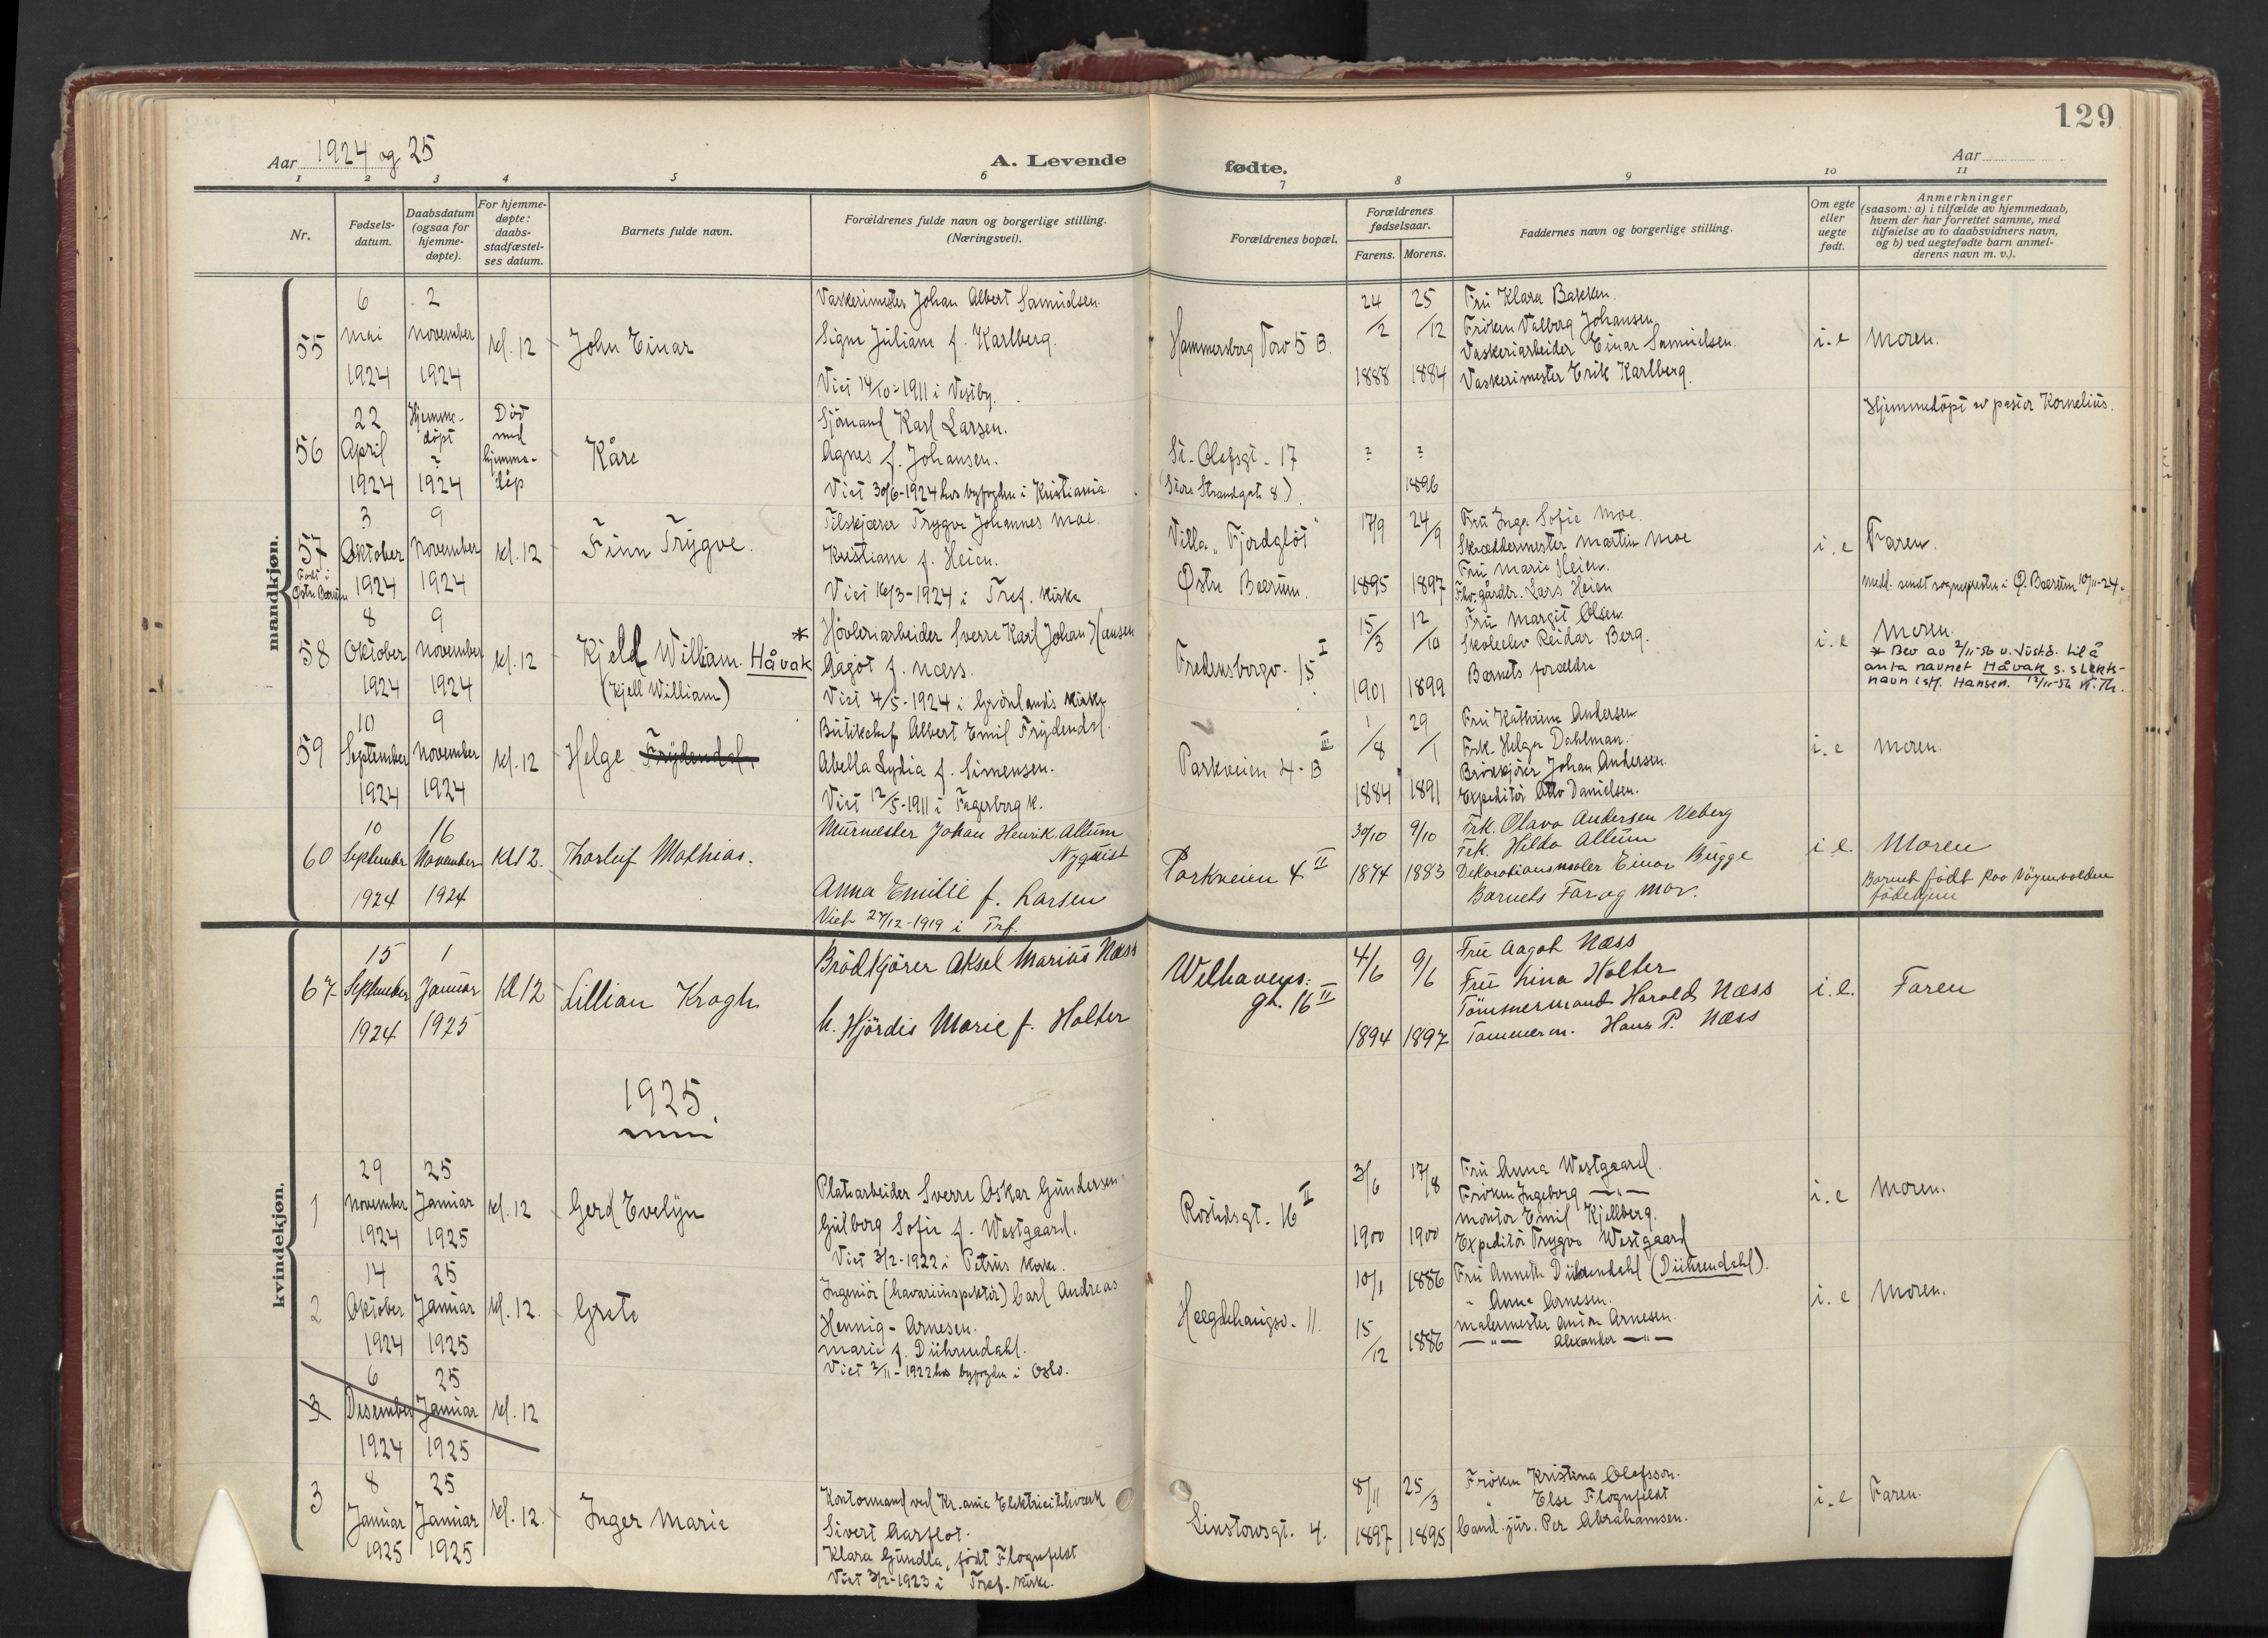 129
Aar 1924 og 25
A. Levende fødte.
Aar
1 2 3 4 5 6 7 8 9 10 11
Nr.
Fødsels-
datum.
Daabsdatum
(ogsaa for
hjemme-
døpte).
For hjemme-
døpte:
daabs-
stadfæstel-
ses datum.
Barnets fulde navn.
Forældrenes fulde navn og borgerlige stilling.
(Næringsvei).
Forældrenes bopæl.
Forældrenes
fødselsaar.
Farens. Morens.
Faddernes navn og borgerlige stilling.
Om egte
eller
uegte
født.
Anmerkninger
(saasom: a) i tilfælde av hjemmedaab,
hvem der har forrettet samme, med
tilføielse av to daabsvidners navn,
og b) ved uegtefødte barn anmel-
derens navn m. v.).
mandkjøn.
55
6
mai
1924
2
november
1924
kl. 12
John Einar
Vaskerimester Johan Albert Samuelsen.
Signe Juliane f. Karlberg.
Viet 14/10-1911 i Vestby.
Hammersborg Torv 5 B.
24/2
1888
25/12
1884
Fru Klara Bakken.
Frøken Valborg Johansen.
Vaskeriarbeider Einar Samuelsen.
Vaskerimester Erik Karlberg.
i. e
Moren.
56
22
April
1924
Hjemme-
døpt
?
1924
Død
med
hjemme-
dåp
Kåre
Sjømand Karl Larsen.
Agnes f. Johansen.
Viet 30/6-1924 hos byfogden i Kristiania.
St. Olafsgt. 17
(Store Strandgate 8.)
?
?
1896
Hjemmedøpt av pastor Kornelius.
57
Født i
Østre Bærum
3
Oktober
1924
9
November
1924
kl. 12
Finn Trygve.
Filskjærer Trygve Johannes Moe
Kristiane f. Heien.
Viet 16/3-1924 i Tref. kirke
Villa "Fjordgløt"
Østre Bærum.
17/9
1895
24/9
1897
Fru Inga Sofie Moe.
Skræddermester Martin Moe
Fru Marie Heien.
Fhv. gårdbr. Lars Heien
i. e
Faren.
Medl. sendt sognepresten i Ø. Bærum 10/11-24.
58
8
Oktober
1924
9
november
1924
kl. 12
Kjeld William. Håvak *
(Kjell William)
Høvleriarbeider Sverre Karl Johan Hansen
Aagot f. Næss.
Viet 4/5-1924 i Grønlands kirke
Fredensborgv. 15 I
15/3
1901
12/10
1899
Fru Margit Olsen.
Skoleelev Reidar Berg.
Barnets forældre
i. e
Moren.
* Bev av 2/11-56 v. Just.d. til å
anta navnet Håvak s. slekts-
navn istf. Hansen. 12/11-56 K.Th.
59
10
September
1924
9
november
1924
kl. 12
Helge Frydendal.
Butikchef Albert Emil Frydendal.
Abella Lydia f. Simensen.
Viet 12/5-1911 i Fagerborg k.
Parkveien 4-B III
1/8
1884
29/1
1891
Fru Kathrine Andersen
Frk. Helga Dahlman.
Brødkjører Johan Andersen.
Expeditør Otto Danielsen.
i. e
Moren.
60
10
September
1924
16
November
1924
Kl 12.
Thorleif Mathias.
Murmester Johan Henrik Allum
Nyquist
Anna Emilie f. Larsen
Viet 27/12-1919 i Trf.
Parkveien 4 II
30/10
1874
9/10
1883
Frk. Olava Andersen Veberg
Frk. Hilda Allum
Dekorationsmaler Einar Bugge
Barnets Far og mor.
i e.
Moren
Barnet født paa Vøyenvolden
fødehjem
kvindekjøn.
67
15
September
1924
1
Januar
1925
Kl 12
Lillian Krogh
Brødkjører Aksel Marius Næss
h. Hjørdis Marie f. Holter
Welhavens:
gt. 16 II
4/6
1894
9/6
1897
Fru Aagot Næss
Fru Lina Holter
Tømmermand Harald Næss
Tømmerm. Hans P. Næss
i. e.
Faren
1925.
1
29
November
1924
25
Januar
1925
kl. 12
Gerd Evelyn
Platearbeider Sverre Oskar Gundersen
Gulborg Sofie f. Westgaard.
Viet 3/2-1922 i Petrus kirke.
Rostedsgt. 16 II
3/6
1900
17/8
1900
Fru Anna Westgaard.
Frøken Ingeborg —"—
Montør Emil Kjellberg.
Expeditør Trygve Westgaard
i. e
Moren.
2
14
Oktober
1924
25
Januar
1925
kl. 12.
Grete
Ingeniør (havariinspektør) Carl Andreas
Hennig-Arnesen.
Marie f. Dührendahl.
Viet 2/11-1922 hos byfogden i Oslo.
Hegdehaugsv. 11.
10/1
1886
15/12
1886
Fru Annette Dührendahl (Dührendahl).
" Anna Arnesen.
Malermester Anton Arnesen.
—"— Alexander —"—
i. e
Moren.
3
6
Desember
1924
25
Januar
1925
kl. 12
3
8
Januar
1925
25
Januar
1925
kl. 12.
Inger Marie
Kontormand ved Kr.ania Elektricitetsverk
Sivert Aarflot.
Klara Gundla, født Flognfeldt
Viet 3/2-1923 i Tref. kirke.
Linstowsgt. 4.
8/11
1897
25/3
1895
Frøken Kristina Olafsson.
" Else Flognfeldt
Cand. jur. Per Abrahamsen.
i. e
Faren.